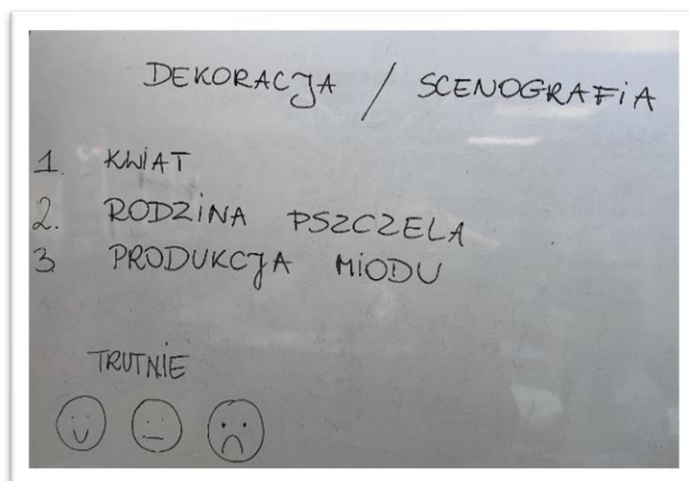 DEKORACJA / SCENOGRAFiA
1. KWiAT
2. RODZiNA PSZCZELA
3 PRODUKCJA MiODU
TRUTNiE